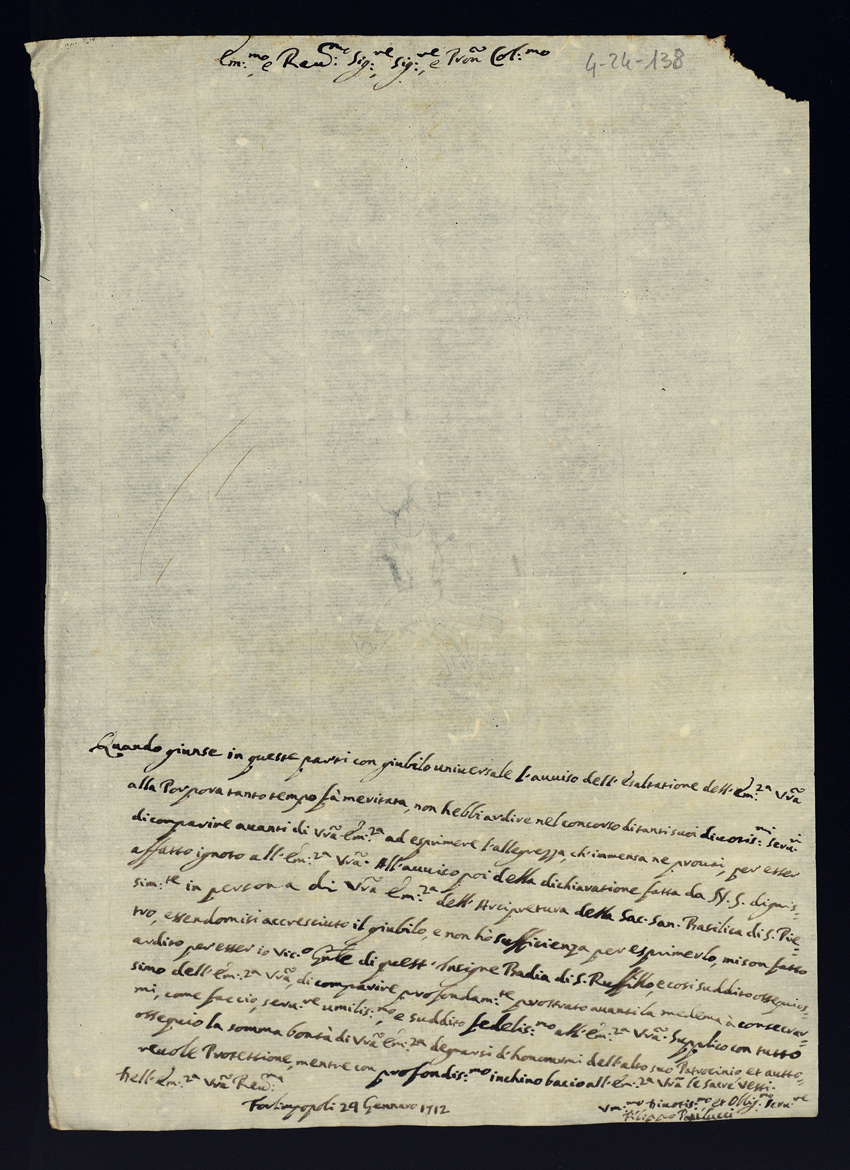 Em:mo e Reud:mo Sig:re Sig:re e Pron Col:mo
4-24-138
Quando giunse in queste parti con giubilo uniuersale l'auuiso dell'Esaltatione dell'Em:za Vrã
alla Porpora tanto tempo fà meritata, non hebbi ardire nel concorso di tanti suoi diuotis:mi seru:ri
di comparire auanti di Vrã Em:za ad esprimere l'allegrezza ch'immensa ne prouai, per esser
affatto ignoto all'Em:za Vrã. All'auuiso poi della dichiaratione fatta da S. dignis-
sim:te in persona di Vrã Em:za dell'Arcipretura della Sac. San. Basilica di S. Pie-
tro, essendomisi accresciuto il giubilo, e non hò sufficienza per esprimerlo, mi son fatto
ardito per esser io Vic:o Gnle di quest'Insigne Badia di S. Ruffillo, e così suddito ossequios-
simo dell'Em:za Vrã, di comparire profondam:te prostrato auanti la medema à consecrar-
mi, come faccio, seru:re umilis:mo e suddito fedelis:mo all'Em:za Vrã. Supplico con tutto
ossequio la somma bontà di Vrã Em:za degnarsi d'honorarmi dell'alto suo Patrocinio et autto-
reuole Protettione, mentre con profondis:mo inchino bacio all'Em:za Vrã le sacre vesti.
Dell'Em:za Vrã Reu:ma
Forlimpopoli 29 Gennaro 1712
Vm:mo Diuotis:mo et Oblig:mo Seru:re
Filippo